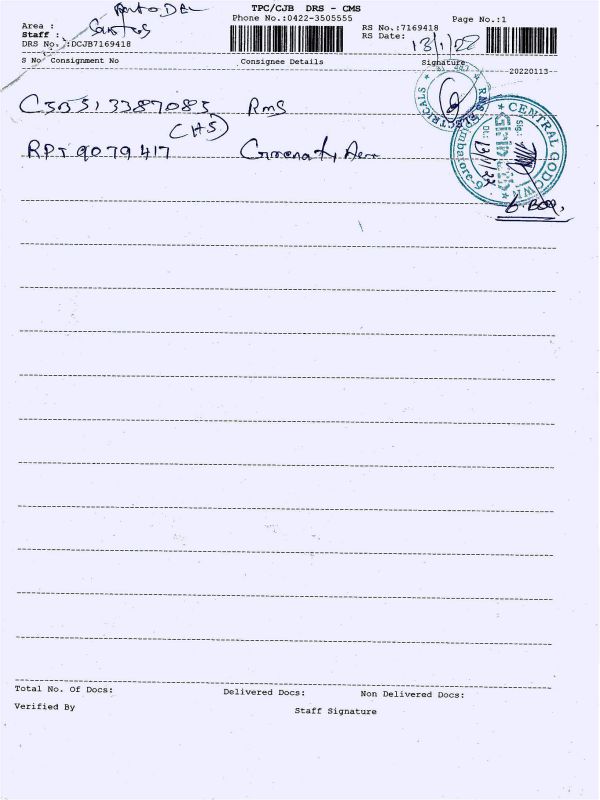 TPC/CJB DRS - CMS
Phone No.:0422-3505555
Page No.:1
Area :
Staff :
RS No.:7169418
RS Date: 13/1/22
DRS No. :DCJB7169418
S No Consignment No Consignee Details Signature
20220113-
CSB513387085 RMS
(CHS)
RPT 9079417
RMS ELECTRICALS
CENTRAL GODOWN
Sig.:
Dt.: 13/1/22
Total No. Of Docs: Delivered Docs: Non Delivered Docs:
Verified By Staff Signature